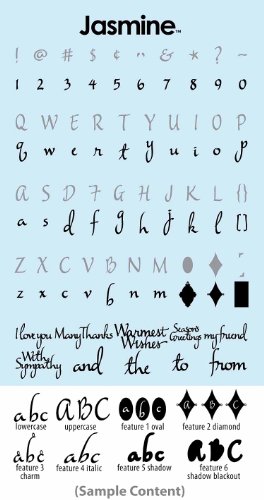 Jasmine™
! @ # $ ¢ ~ & * ? –
1 2 3 4 5 6 7 8 9 0
Q W E R T Y U I O P
q w e r t y u i o p
A S D F G H J K L {}
a s d f g h j k l []
Z X C V B N M
z x c v b n m
I love you Many Thanks Warmest Wishes Season's Greetings my friend
With Sympathy and the to from
abc ABC abc ABC
lowercase uppercase feature 1 oval feature 2 diamond
abc abc abc ABC
feature 3 charm feature 4 italic feature 5 shadow feature 6 shadow blackout
(Sample Content)